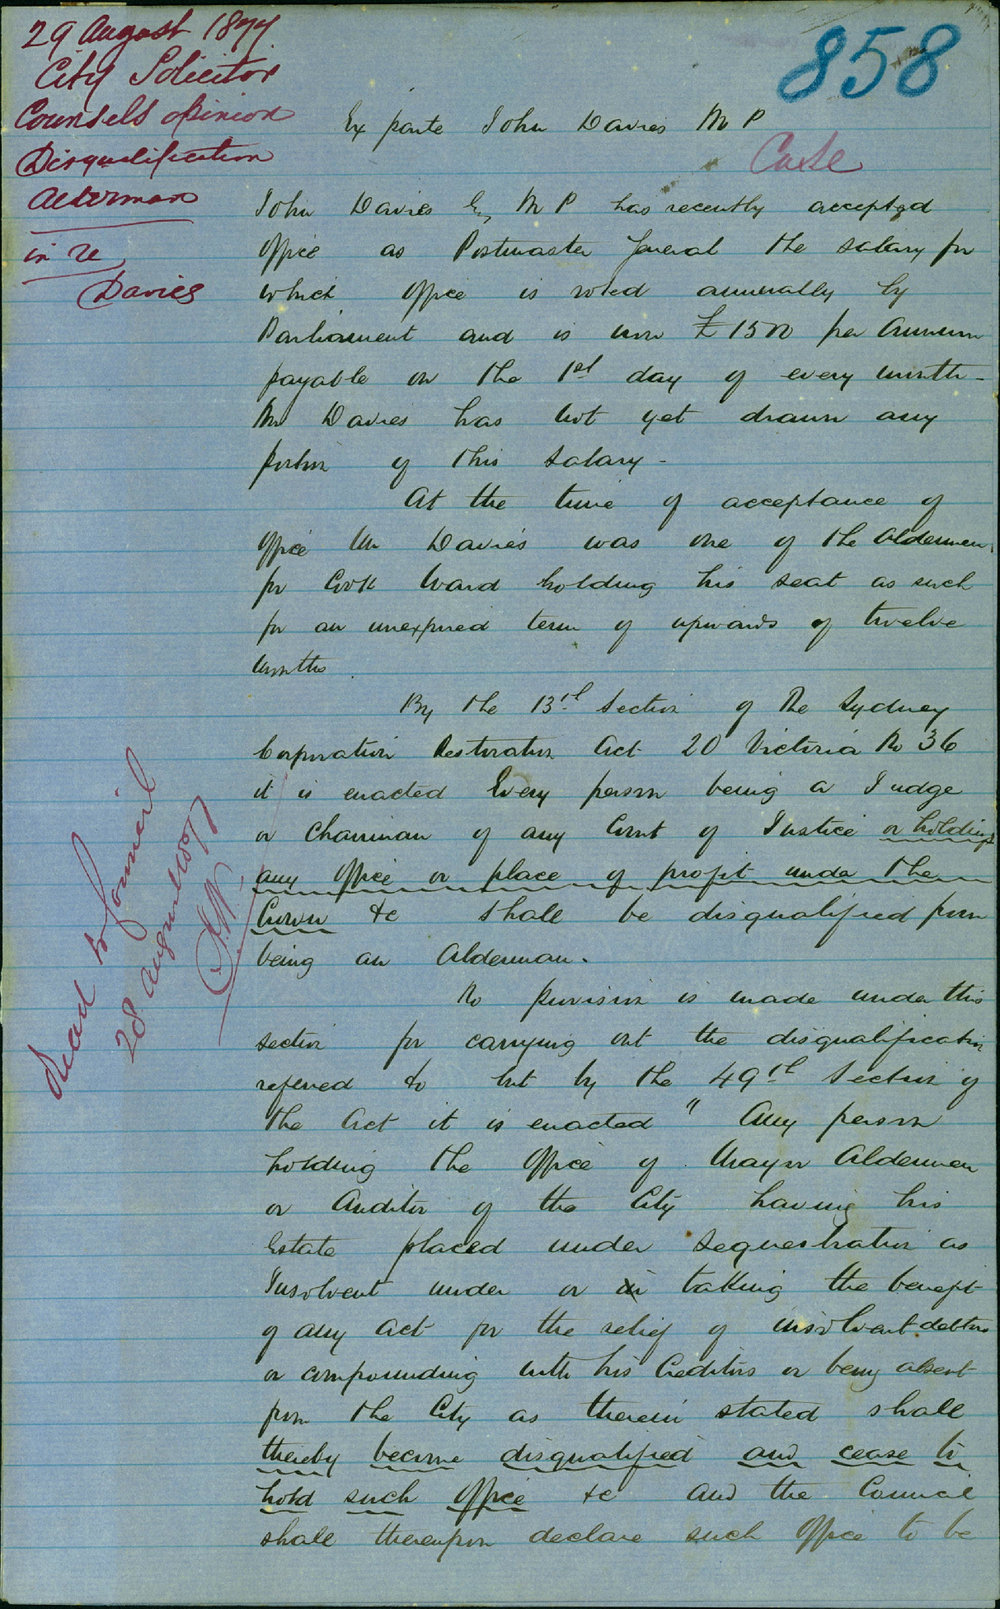 29 August 1877
City Solicitor
Counsels opinion
Disqualification
Alderman
in re
Davies
858
Ex parte John Davies M P
Case
John Davies Esq M P has recently accepted
Office as Postmaster General the salary for
which office is voted annually by
Parliament and is now £1500 per Annum
payable on the 1st day of every month -
Mr Davies has not yet drawn any
portion of this Salary -
At the time of acceptance of
Office Mr Davies was one of the Aldermen
for Cook Ward holding his seat as such
for an unexpired term of upwards of twelve
months.
By the 13th Section of The Sydney
Corporation Restoration Act 20 Victoria No 36
it is enacted Every person being a Judge
or Chairman of any Court of Justice or holding
any Office or place of profit under the
Crown &c shall be disqualified from
being an Alderman.
No provision is made under this
section for carrying out the disqualification
referred to but by the 49th Section of
the Act it is enacted " Any person
holding the Office of Mayor Alderman
or Auditor of the City having his
Estate placed under Sequestration as
Insolvent under or in taking the benefit
of any Act for the relief of insolvent debtors
or compounding with his Creditors or being absent
from the City as therein stated shall
thereby become disqualified and cease to
hold such Office &c and the Council
shall thereupon declare such Office to be
Read to Council
28 August 1877